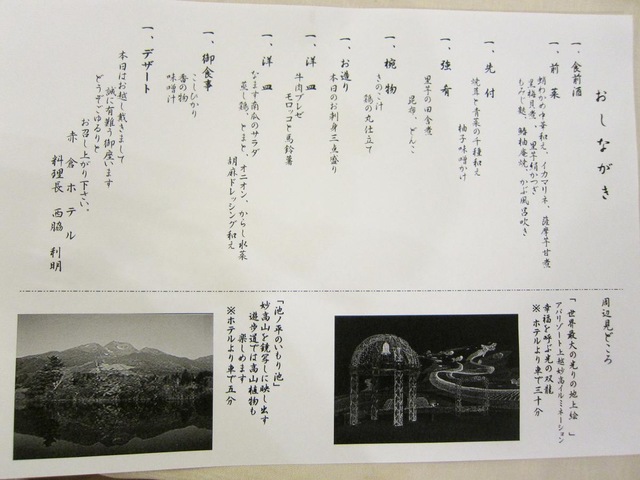 おしながき
一、食前酒
一、前菜
鮹わかめゆ華和え、イカマリネ、薩摩芋甘煮
黒梅貝煮、里芋絹かつぎ
もみじ麩、鰆柚庵焼、かぶ風呂吹き
一、先付
焼茸と青菜の千種和え
柚子味噌かけ
一、強肴
里芋の田舎煮
昆布、どんこ
一、椀物
きのこ汁
鶏の丸仕立て
一、お造り
本日のお刺身三点盛り
一、洋皿
牛肉ブレゼ
モロッコと馬鈴薯
一、洋皿
なます南瓜のサラダ
蒸し鶏、とまと、オニオン、からし水菜
胡麻ドレッシング和え
一、御食事
こしひかり
香の物
味噌汁
一、デザート
本日はお越し戴きまして
誠に有難う御座います
どうぞごゆるりと
お召し上がり下さい。
赤倉ホテル
料理長 西脇 利明
周辺見どころ
「世界最大の光りの地上絵」
アパリゾート上越妙高イルミネーション
幸福を呼ぶ光の双龍
※ホテルより車で三十分
「池ノ平のいもり池」
妙高山を鏡写しに映し出す
遊歩道では高山植物も
楽しめます
※ホテルより車で五分